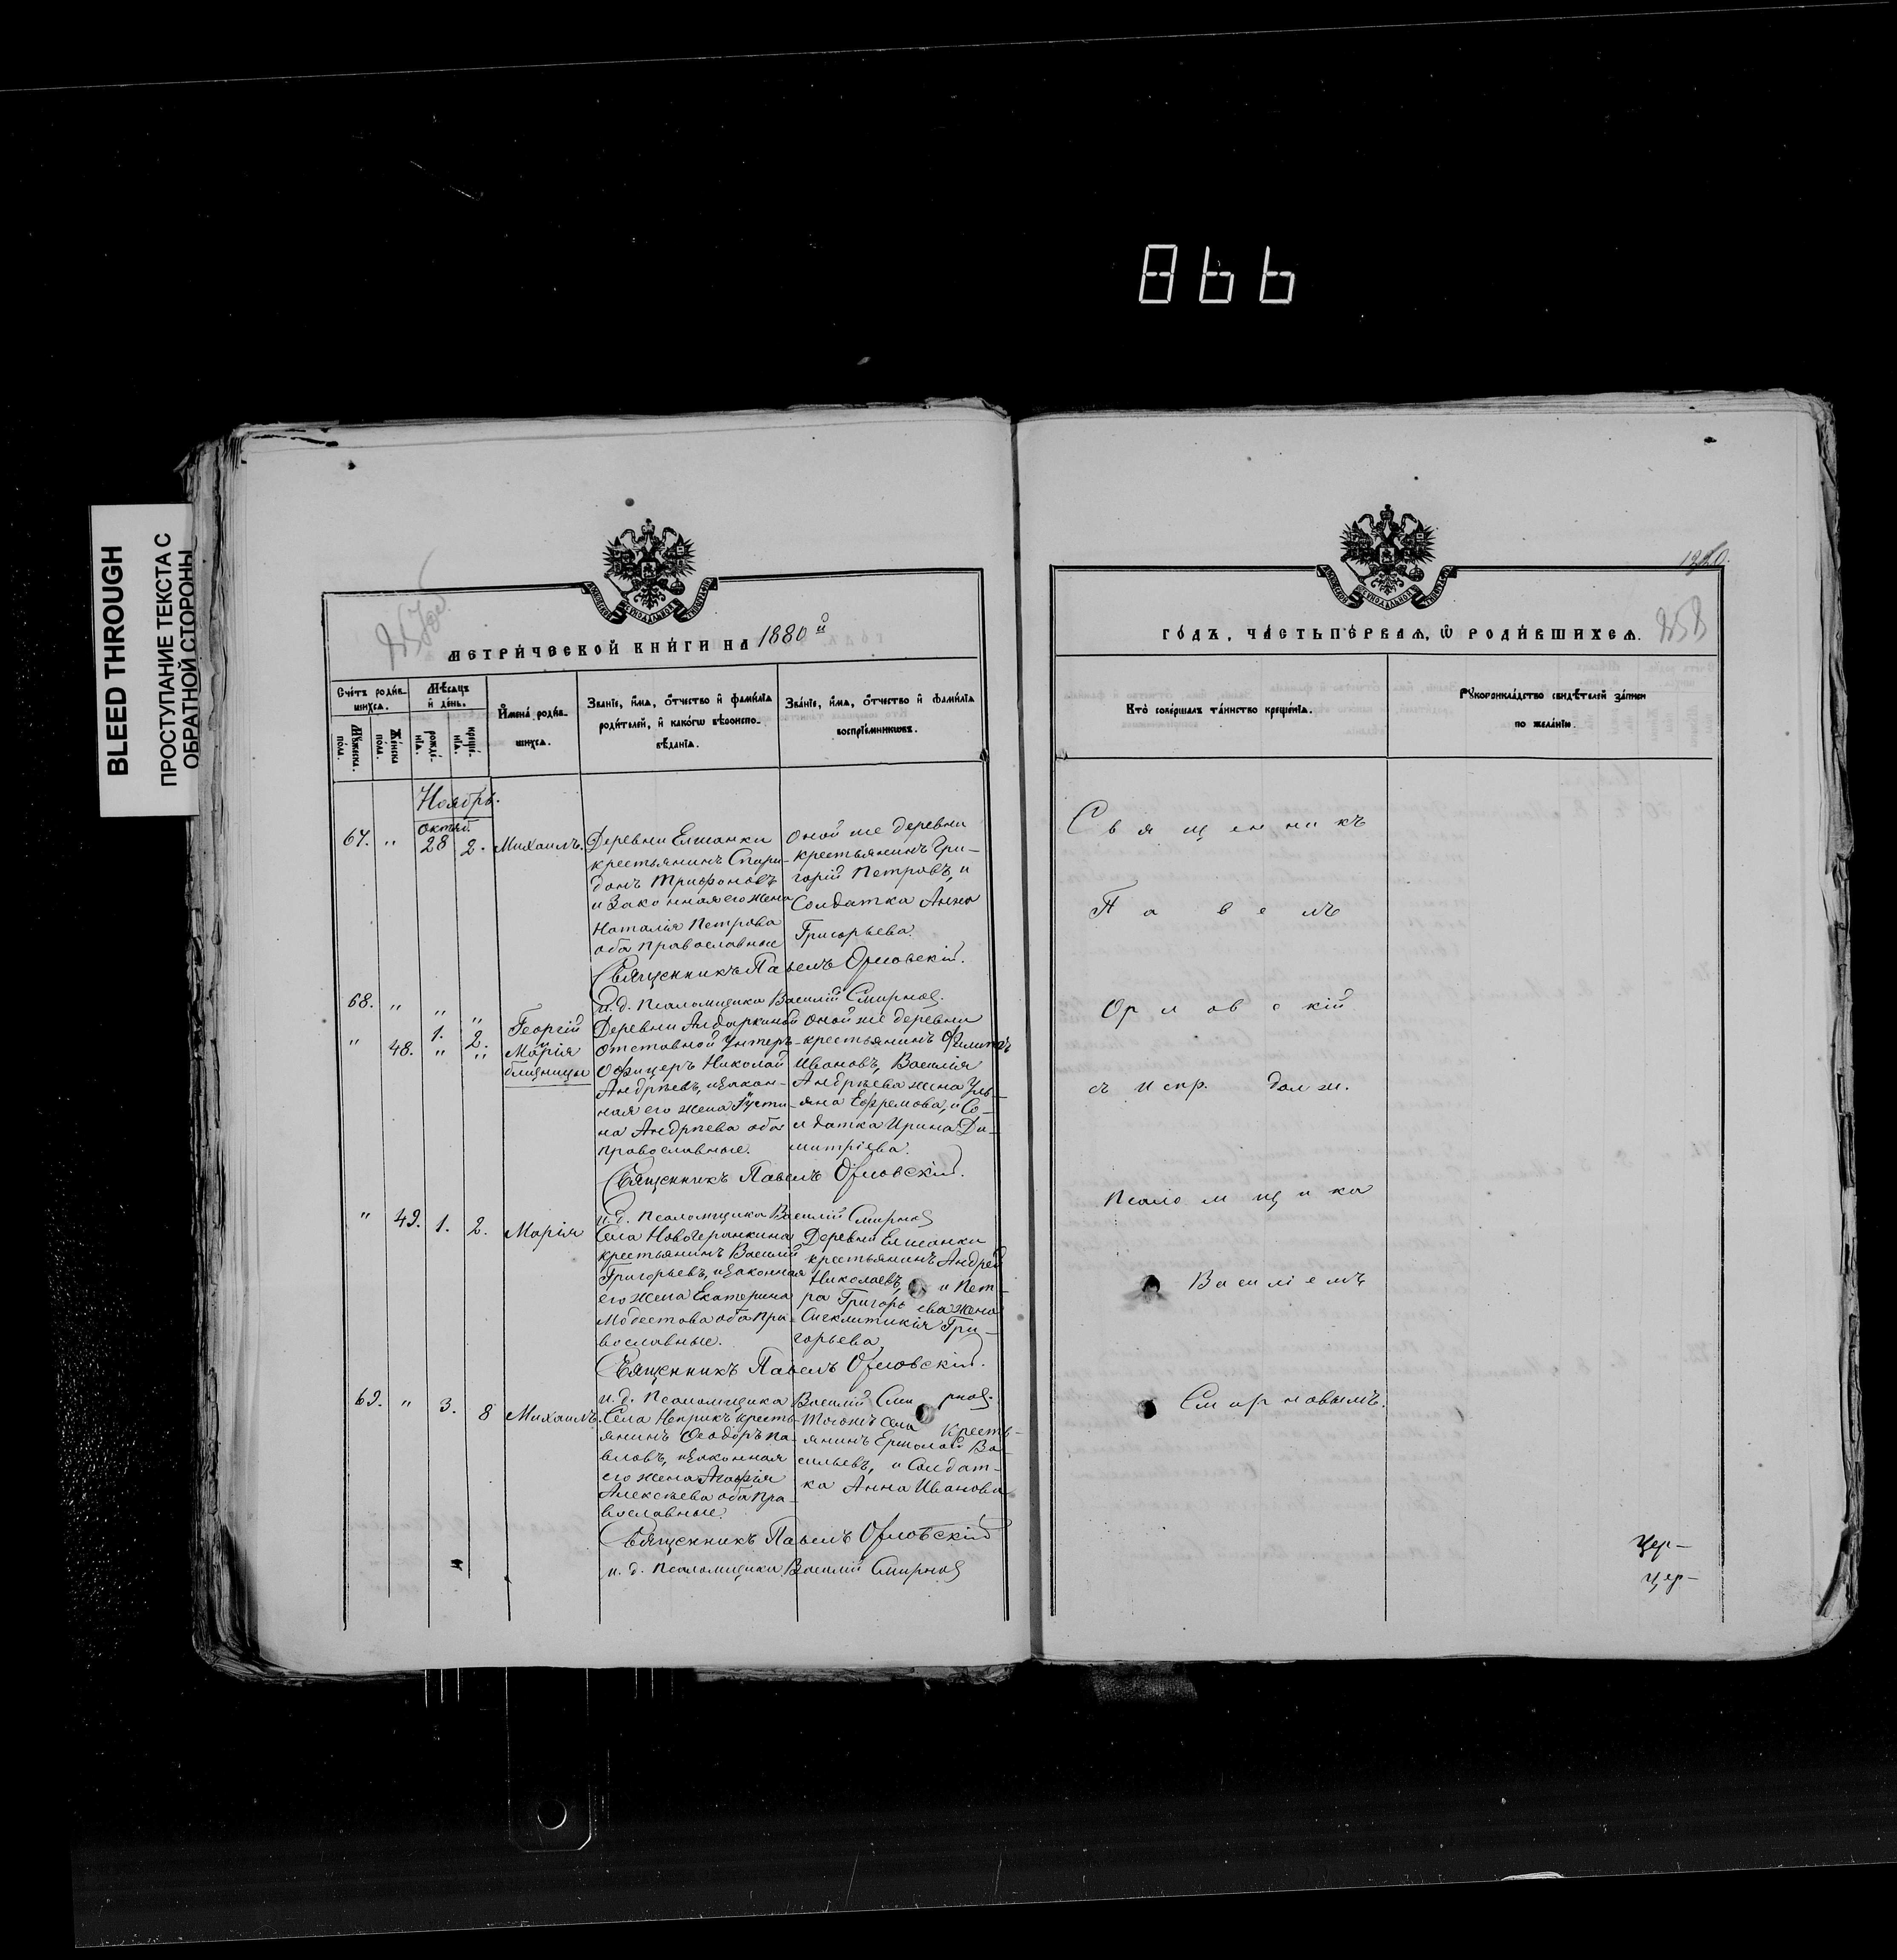 866
BLEED THROUGH
ПРОСТУПАНИЕ ТЕКСТА С
ОБРАТНОЙ СТОРОНЫ
МЕТРИ́ЧЕСКОЙ КНИ́ГИ НА 1880й
Сче́тъ роди́в-
шихсѧ.
Мꙋ́жеска
по́ла.
Же́нска
по́ла.
Мѣ́сѧцъ
и҆ де́нь.
рожде́-
нїѧ.
креще́-
нїѧ.
И҆мена̀ роди́в-
шихсѧ.
Зва́нїе, и҆́мѧ, ѻ҆́тчество и҆ фами́лїѧ
роди́телей, и҆ како́гѡ вѣроиспо-
вѣ́данїѧ.
Зва́нїе, и҆́мѧ, ѻ҆́тчество и҆ фами́лїѧ
воспрїе́мникѡвъ.
Ноябрь.
Октяб.
67. " 28 2. Михаилъ.
Деревни Елшанки
крестьянинъ Спири-
донъ Трифоновъ
и законная его жена
Наталія Петрова
оба православные
Оной же деревни
крестьянинъ Гри-
горій Петровъ, и
Солдатка Анна
Григорьева.
Священникъ Павелъ Орловскій.
и. д. Псаломщика Василій Смирнов
68. " " "
1. 2. Георгій
" 48. " "
и
Марія
близницы
Деревни Алдаркиной
отставной унтеръ-
офицеръ Николай
Андрѣевъ, и закон-
ная его жена Густи-
на Андрѣева оба
православные.
оной же деревни
крестьянинъ Филипъ
Ивановъ, Василія
Андрѣева жена Уль-
яна Ефремова, и Со-
лдатка Ирина Ди-
митріева.
Священникъ Павелъ Орловскій.
и. д. Псаломщика Василій Смирнов
" 49. 1. 2. Марія
Села Новогеранкина
крестьянинъ Василій
Григорьевъ, и законная
его жена Екатерина
Модестова оба пра-
вославные.
Деревни Елшанки
крестьянинъ Андрей
Николаевъ, и Пет-
ра Григорьева жена
Сигклитикія Гри-
горьева
Священникъ Павелъ Орловскій.
и. д. Псаломщика Василій Смирнов
69. " 3. 8 Михаилъ.
Села Неприкъ кресть-
янинъ Ѳеодоръ Па-
вловъ, и законная
его жена Агафія
Алексѣева оба пра-
вославные.
Тогожъ села кресть-
янинъ Ермолай Ва-
сильевъ, и Солдат-
ка Анна Иванова
Священникъ Павелъ Орловскій
и. д. Псаломщика Василій Смирнов
ГО́ДЪ, ЧА́СТЬ ПЕ́РВАѦ, Ѡ҆ РОДИ́ВШИХСѦ.
Кто̀ соверша́лъ та́инство креще́нїѧ.
Рꙋкоприкла́дство свидѣ́телей за́писи
по жела́нїю.
Священникъ
Павелъ
Орловскій
съ испр. долж.
Псаломщика
Василіемъ
Смирновымъ.
Цер-
цер-